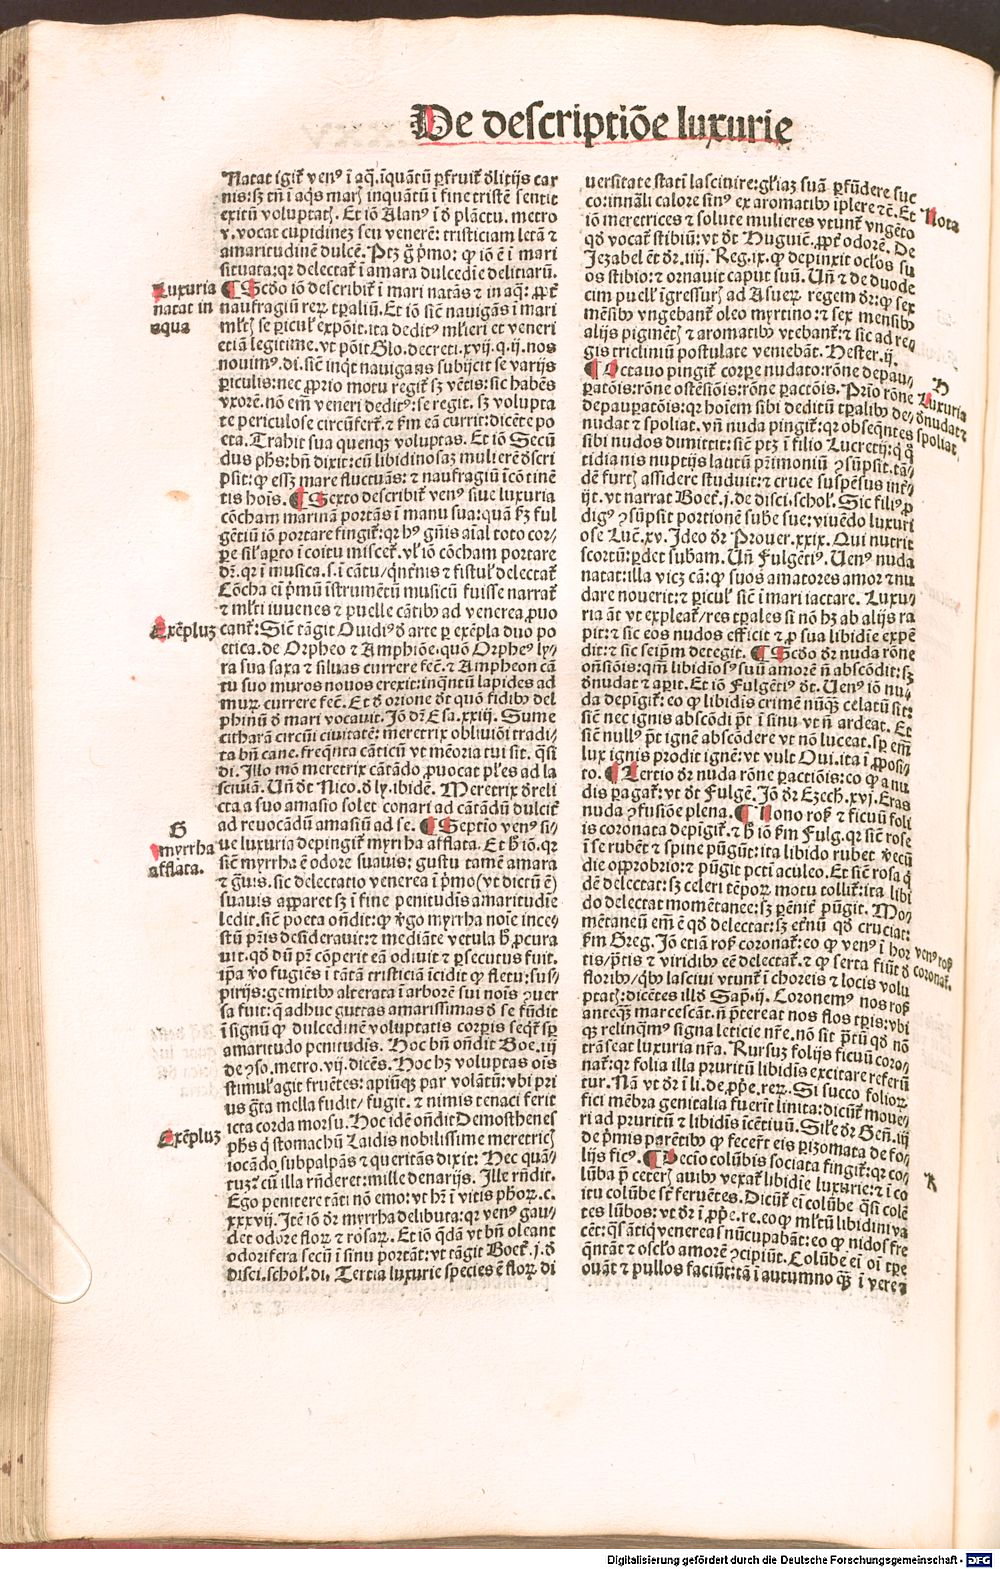 De descriptiōe luxurie
Natat igit᷑ ven⁹ ī aq̄. īquātū ꝑfruit᷑ ð͛litijs car
nis: sꝫ tn̄ ī aq̄s maꝶ inquātū ī fine tristē sentit
exitū voluptatꝭ. Et iō Alan⁹ ī ð plāctu. metro
v. vocat cupidinez seu venerē: tristiciam letā ⁊
amaritudinē dulcē. Ptꝫ g̊ p̄mo: ꝙ iō ē ī mari
situata: qꝛ delectat᷑ ī amara dulcedīe delitiarū.
Luxuria
natat in
aqua
¶ Scd̄o iō describit᷑ ī mari natās ⁊ in aq̄: ꝓpt᷑
naufragiū reꝝ tꝑaliū. Et iō sic̄ nauigās ī mari
ml̓tꝭ se pericul̓ expōit. ita dedit⁹ ml̓ieri et veneri
etiā legitime. vt pōit Glo. decreti. xvij. q. ij. nos
nouim⁹. di. sic̄ inq̄t nauigans subijcit se varijs
ꝑiculis: nec ꝓprio motu regit᷑ sꝫ vētis: sic habēs
vxorē. nō em̄ veneri dedit⁹: se regit. sꝫ volupta
te periculose circūfert᷑. ⁊ fm̄ eā currit: dicēte po
eta. Trahit sua quenqꝫ voluptas. Et iō Secū
dus ph̄s: bn̄ dixit: eū libidinosaꝫ mulierē ð͛scri
psit: ꝙ essꝫ mare fluctuās: ⁊ naufragiū īcōtinē
tis hoīs. ¶ Sexto describit᷑ ven⁹ siue luxuria
cōcham marinā portās ī manu sua: quā fꝫ ful
gētiū iō portare fingit᷑: qꝛ h⁹ gn̄is aīal toto cor⸗
ꝑe sil̓ aꝑto ī coitu miscet᷑. vl̓ iō cōcham portare
dꝛ̄. qꝛ ī musica. s. ī cātu/ qn̄t᷑nis ⁊ fistul̓ delectat᷑
Cōcha eī p̄mū īstrumētū musicū fuisse narrat᷑
⁊ ml̓ti iuuenes ⁊ puelle cātibꝰ ad venerea ꝓuo
Exēpluꝫ
cant᷑: Sic̄ tāgit Ouidi⁹ ð arte ꝑ exēpla duo po
etica. de Orpheo ⁊ Amphiōe. quō Orphe⁹ ly⸗
ra sua saxa ⁊ siluas currere fec̄. ⁊ Ampheon cā
tu suo muros nouos erexit: inq̄ntū lapides ad
muꝝ currere fec̄. Et ð orione ð͛t quō fidibꝰ del
phinū ð mari vocauit. Iō dꝛ̄ Esa. xxiij. Sume
citharā circūi ciuitatē: meretrix obliuiōi tradi⸗
ta bn̄ cane. freq̄nta cāticū vt mēoria tui sit. q̄si
di. Illo mō meretrix cātādo ꝓuocat pl̓es ad la
sciuiā. Un̄ ð͛t Nico. ð ly. ibidē. Meretrix ð͛reli
cta a suo amasio solet conari ad cātādū dulcit᷑
ad reuocādū amasiū ad se. ¶ Septīo ven⁹ si⸗
G
myrrha
afflata.
ue luxuria depingit᷑ myrrha afflata. Et h̄ iō. qꝛ
sic̄ myrrha ē odore suauis: gustu tamē amara
⁊ g̊uis. sic delectatio venerea ī p̄mo (vt dictū ē)
suauis apparet sꝫ ī fine penitudis amaritudīe
ledit. sic̄ poeta on̄dit: ꝙ v͛go myrrha noīe ince⸗
stū pr̄is desiderauit: ⁊ mediāte vetula h̄ ꝓcura
uit. qð dū pr̄ cōperit eā odiuit ⁊ ꝑsecutus fuit.
ip̄a v͛o fugiēs ī tātā tristiciā īcidit ꝙ fletu: sus⸗
pirijs: gemitibꝰ alterata ī arborē sui noīs ꝯuer
sa fuit: q̄ adhuc guttas amarissimas ð se fūdit
ī signū ꝙ dulcedinē voluptatis corꝑis seqt᷑ sꝑ
amaritudo penitudis. Hoc bn̄ on̄dit Boe. iij
de ꝯso. metro. vij. dicēs. Hoc hꝫ voluptas oīs
stimul̓ agit fruētes: apiūqꝫ par volātū: vbi pri
us g̊ta mella fudit/ fugit. ⁊ nimis tenaci ferit
icta corda morsu. Hoc idē on̄dit Demosthenes
Exēpluꝫ
ph̄s q̄ stomachū Laidis nobilissime meretricꝭ
iocādo subpalpās ⁊ queritās dixit: Pec quā⸗
tuꝫ? cū illa rn̄deret: mille denarijs. Ille rn̄dit.
Ego penitere tāti nō emo: vt hꝛ̄ ī vitis ph̄oꝝ. c.
xxxvij. Itē iō dꝛ̄ myrrha delibuta: qꝛ ven⁹ gau⸗
det odore floꝝ ⁊ rosaꝝ. Et iō q̄dā vt bn̄ oleant
odorifera secū ī sinu portāt: vt tāgit Boet̄. j. ð
disci. schol̓. di. Tertia luxurie species ē floꝝ di
uersitate stati lasciuire: gl̓iaꝫ suā ꝑfūdere suc
co: innāli calore sin⁹ ex aromatibꝰ īplere ⁊c̄. Et
Nota
iō meretrices ⁊ solute mulieres vtunt᷑ vngēto
qð vocat᷑ stibiū: vt ð͛t Huguiē. ꝓpt᷑ odorē. De
Jezabel ēt dꝛ̄. iiij. Reg. ix. ꝙ depinxit ocl̓os su
os stibio: ⁊ ornauit caput suū. Un̄ ⁊ de duode
cim puell̓ īgressurꝭ ad Asueꝝ regem dꝛ̄: ꝙ sex
mēsibꝰ vngebant᷑ oleo myrtino: ⁊ sex mensibꝰ
alijs pigmētꝭ ⁊ aromatibꝰ vtebant᷑: ⁊ sic ad re⸗
gis tricliniū postulate veniebāt. Hester. ij.
H
Luxuria
ð͛nudat ⁊
spoliat.
¶ Octauo pingit᷑ corꝑe nudato: rōne depau⸗
ꝑatōis: rōne ostēsiōis: rōne ꝑactōis. Prīo rōne
depauꝑatōis: qꝛ hoīem sibi deditū tꝑalibꝰ de⸗
nudat ⁊ spoliat. vn̄ nuda pingit᷑: qꝛ obseqn̄tes
sibi nudos dimittit: sic̄ ptꝫ ī filio Lucretij: q̄ q̊
tidianis nuptijs lautū pr̄imoniū ꝯsūpsit. tā⸗
dē furtꝭ assidere studuit: ⁊ cruce suspēsus int͛⸗
ijt. vt narrat Boet̄. j. de disci. schol̓. Sic fili⁹ ꝓ
dig⁹ ꝯsūpsit portionē sub̄e sue: viuēdo luxuri
ose Luc̄. xv. Ideo dꝛ̄ Prouer. xxix. Qui nutrit
scortū: ꝑdet subam. Un̄ Fulgēti⁹. Uen⁹ nuda
natat: illa vicꝫ cā: ꝙ suos amatores amor ⁊ nu
dare nouerit: ⁊ ꝑicul̓ sic̄ ī mari iactare. Luxu⸗
ria āt vt expleat᷑/ res tꝑales si nō hꝫ ab alijs ra
pit: ⁊ sic eos nudos efficit ⁊ ꝓ sua libidīe expē
dit: ⁊ sic seip̄m detegit. ¶ Scd̄o dꝛ̄ nuda rōne
on̄siōis: qm̄ libidīos⁹ suū amorē n̄ abscōdit: sꝫ
ð͛nudat ⁊ aꝑit. Et iō Fulgēti⁹ ð͛t. Uen⁹ iō nu⸗
da depīgit᷑: eo ꝙ libidīs crimē nūqꝫ celatū sit:
sic̄ nec ignis abscōdi pōt ī sinu vt n̄ ardeat. Et
sic̄ null⁹ pōt ignē abscōdere vt nō luceat. sꝑ em̄
lux ignis prodit ignē: vt vult Oui. ita ī ꝓposi⸗
to. ¶ Tertio dꝛ̄ nuda rōne ꝑactiōis: eo ꝙ a nu
dis ꝑagat᷑: vt ð͛t Fulgē. Iō dꝛ̄ Ezech. xvj. Eras
nuda ⁊ ꝯfusiōe plena. ¶ Nono ros̄ ⁊ ficuū foli
is coronata depigit᷑. ⁊ h̄ iō fm̄ Fulg. qꝛ sic̄ rose
ī se rubēt ⁊ spine pūgūt: ita libido rubet v͛ecū
die opprobrio: ⁊ pūgit pctī aculeo. Et sic̄ rosa q̄
dē delectat: sꝫ celeri tēpoꝝ motu tollit᷑: ita libi
do delectat momētanee: sꝫ ꝑēnit᷑ pūgit. Mo⸗
mētaneū em̄ ē qð delectat: sꝫ et᷑nū qð cruciat:
ven⁹ ros̄
coronat᷑.
fm̄ Greg. Iō etiā ros̄ coronat᷑: eo ꝙ ven⁹ ī hor
tis/ pr̄tis ⁊ viridibꝰ eē delectat᷑. ⁊ ꝙ serta fiūt ð
floribꝰ/ q̄bꝰ lasciui vtunt᷑ ī choreis ⁊ locis volu
ptatꝭ: dicētes illð Sap̄. ij. Coronem⁹ nos ros̄
anteqꝫ marcescāt. n̄ pretereat nos flos tꝑis: vbi
qꝫ relinqm⁹ signa leticie nr̄e. nō sit pr̄tū qð nō
trāseat luxuria nr̄a. Rursuꝫ folijs ficuū coro⸗
nat᷑: qꝛ folia illa pruritū libidis excitare referū
tur. Nā vt dꝛ̄ ī li. de ꝓpe. reꝝ. Si succo folioꝝ
fici mēbra genitalia fuerīt linita: dicūt᷑ moue⸗
ri ad pruritū ⁊ libidis īcētiuū. Sil̓e dꝛ̄ Gen̄. iij
de p̄mis parētibꝰ ꝙ fecer̄t eis perizomata de fo⸗
lijs fic⁹. ¶ Decīo colūbis sociata fingit᷑: qꝛ co⸗
K
lūba p̄ ceterꝭ auibꝰ vexat᷑ libidīe luxurie: ⁊ ī co
itu colūbe st̄ feruētes. Dicūt᷑ eī colūbe q̄si colē
tes lūbos: vt dꝛ̄ ī ꝓpe. re. eo ꝙ ml̓tū libidini va
cēt: q̄s ātiq̄ venereas nūcupabāt: eo ꝙ nidos fre
qn̄tāt ⁊ oscl̓o amorē ꝯcipiūt. Colūbe eī oī tꝑe
ouāt ⁊ pullos faciūt: tā ī autumno qꝫ ī vere ⁊
Digitalisierung gefördert durch die Deutsche Forschungsgemeinschaft - DFG